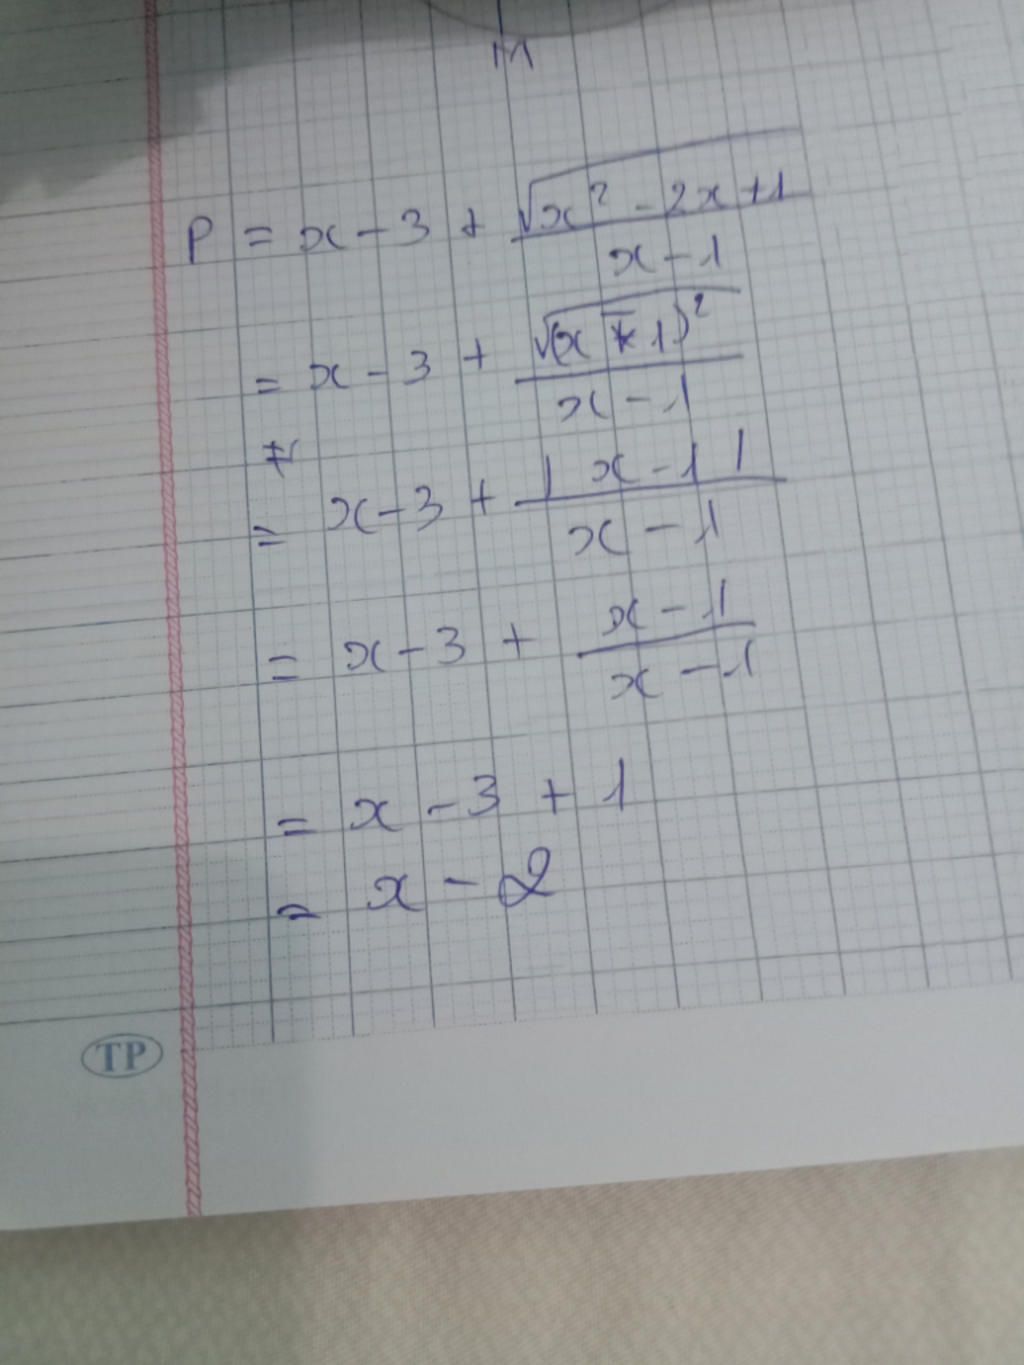 M
P = x - 3 + √(x² - 2x + 1) / (x - 1)
= x - 3 + √((x - 1)²) / (x - 1)
≠
= x - 3 + |x - 1| / (x - 1)
= x - 3 + (x - 1) / (x - 1)
= x - 3 + 1
= x - 2
TP